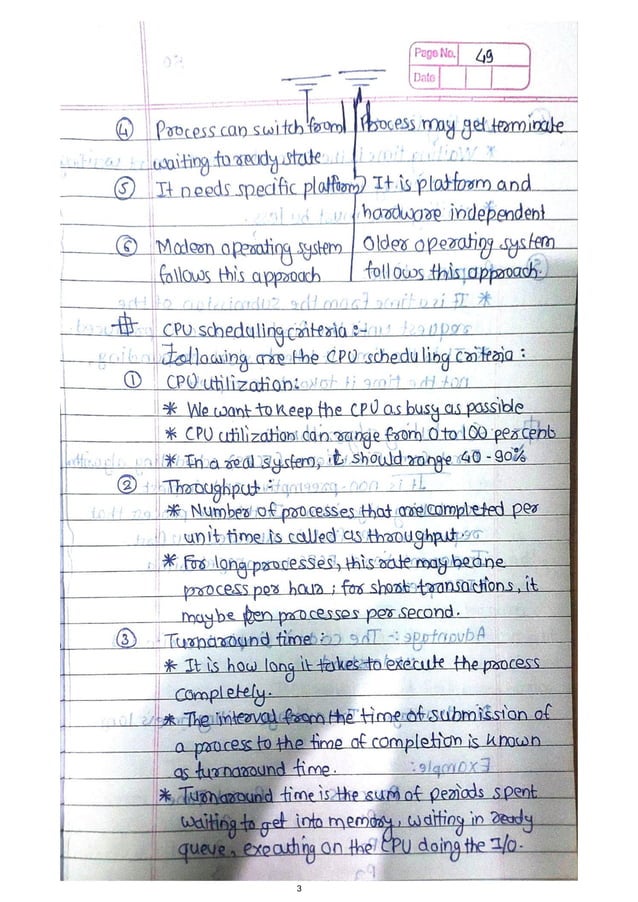 Page No. 49
Date
④ Process can switch from | Process may get terminate
waiting to ready state
⑤ It needs specific platform | It is platform and
hardware independent
⑥ Modern operating system | Older operating system
follows this approach | follows this approach.
CPU scheduling criteria :-
Following are the CPU scheduling criteria :
① CPU utilization:
* We want to keep the CPU as busy as possible
* CPU utilization can range from 0 to 100 percent
* In a real system, it should range 40 - 90%
② Throughput :
* Number of processes that are completed per
unit time is called as throughput
* For long processes, this rate may be one
process per hour ; for short transactions, it
may be ten processes per second.
③ Turnaround time :
* It is how long it takes to execute the process
completely.
* The interval from the time of submission of
a process to the time of completion is known
as turnaround time.
* Turnaround time is the sum of periods spent
waiting to get into memory, waiting in ready
queue, executing on the CPU doing the I/O.
3